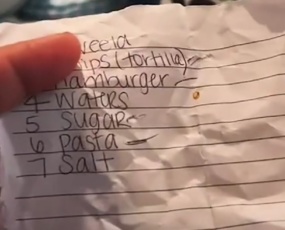 (tortilla)
hamburger
4 Waters
5 Sugar
6 pasta
7 Salt